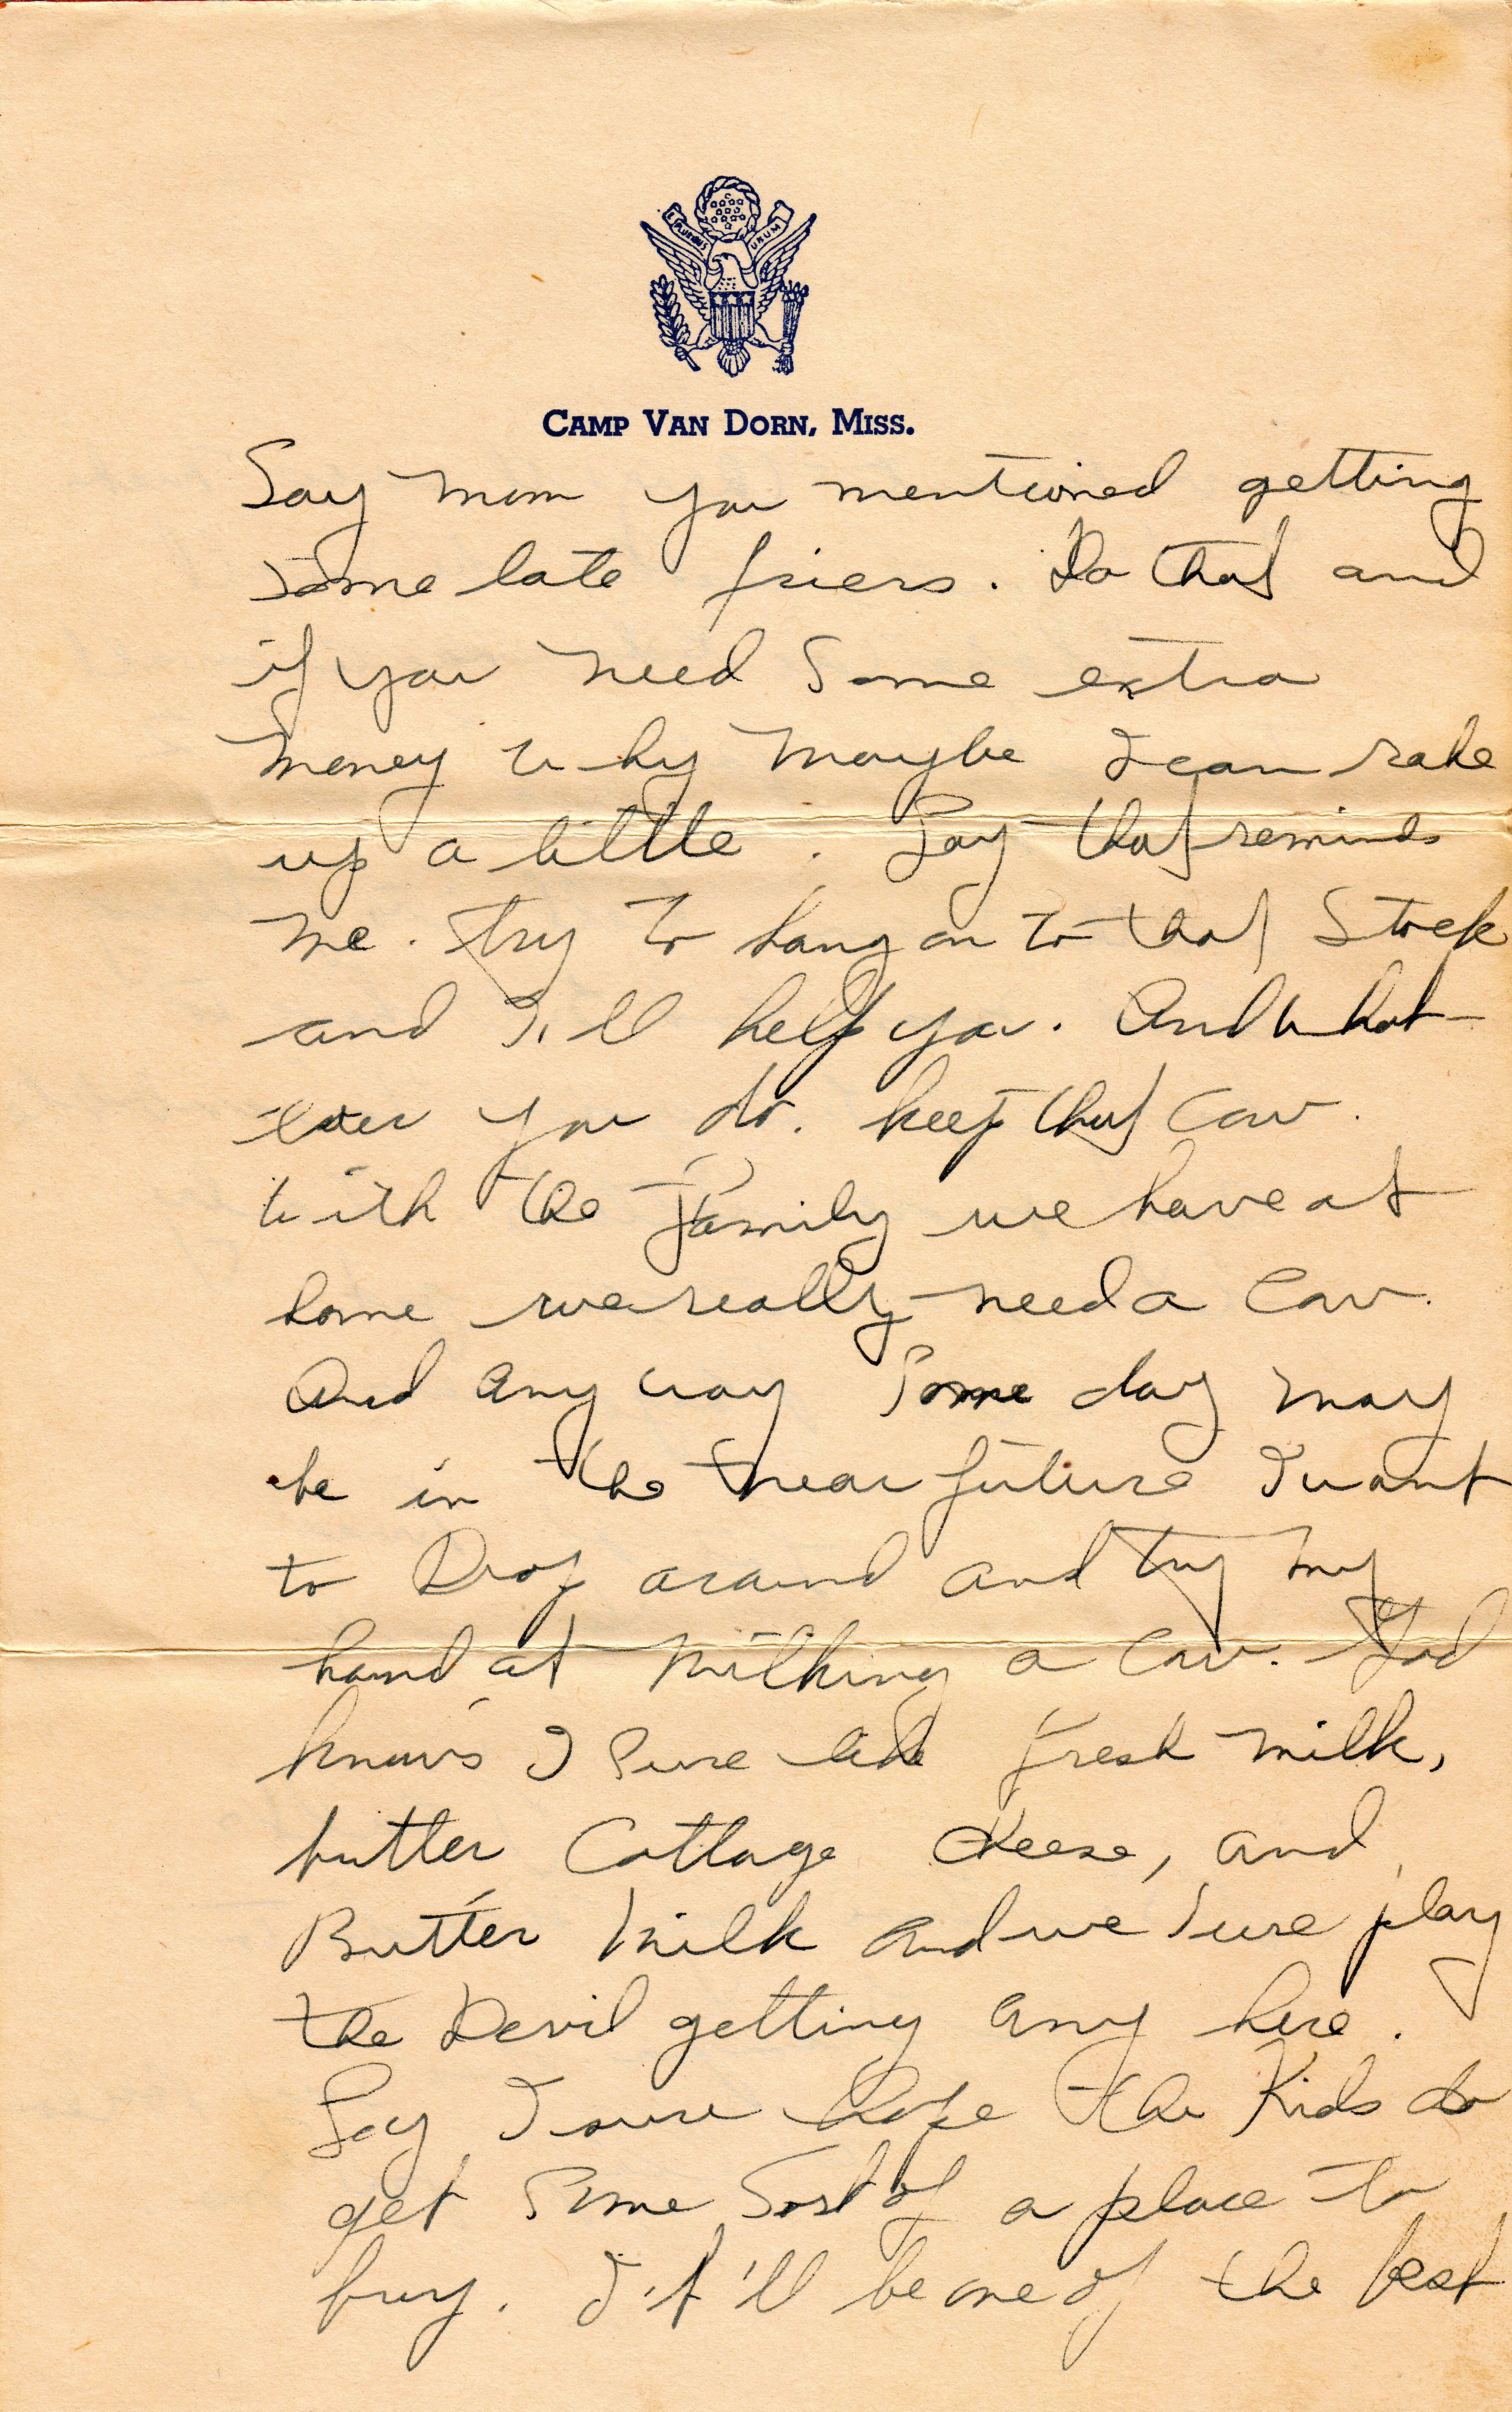 E PLURIBUS UNUM
CAMP VAN DORN, MISS.
Say mom you mentioned getting
some late friers. Do that and
if you need some extra
money why maybe I can rake
up a little. Say that reminds
me. try to hang on to that Stock
and I'll help you. And what-
ever you do. keep that Cow.
with the Family we have at
home we really need a Cow.
And any way Some day may
be in the near future I want
to Drop around and try my
hand at milking a Cow. God
knows I Sure like fresh milk,
butter Cottage Cheese, and
Butter milk and we sure play
the Devil getting any here.
Say I sure hope the Kids do
get Some Sort of a place to
buy. It'll be one of the best